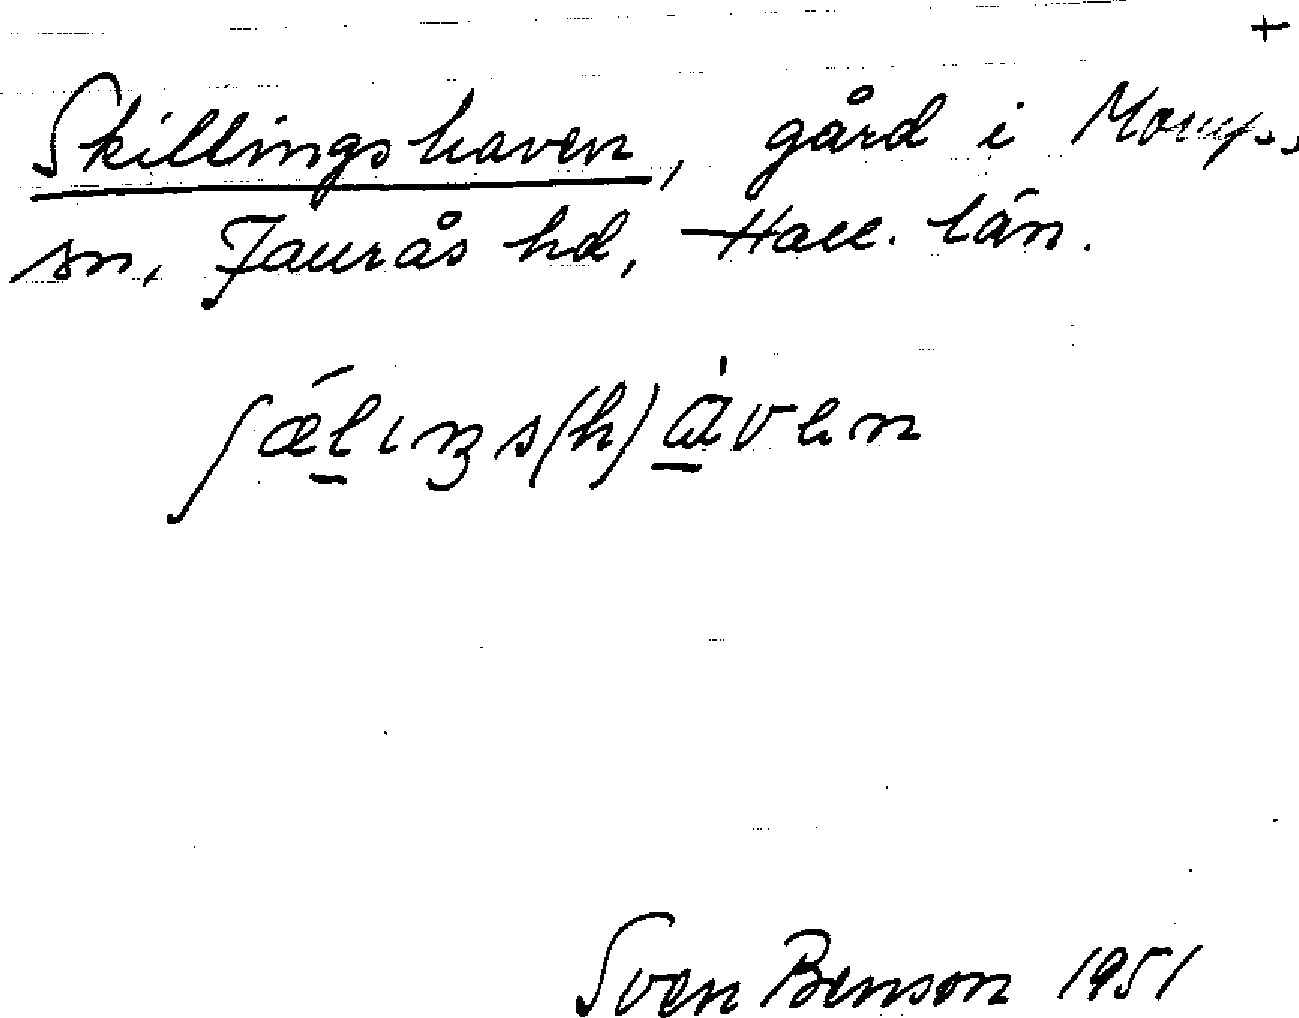 +
Skillingshaven, gård i Morups
sn, Faurås hd, Hall. län.
ʃæ̲lɩŋs(h)a̲vɘn
Sven Benson 1951